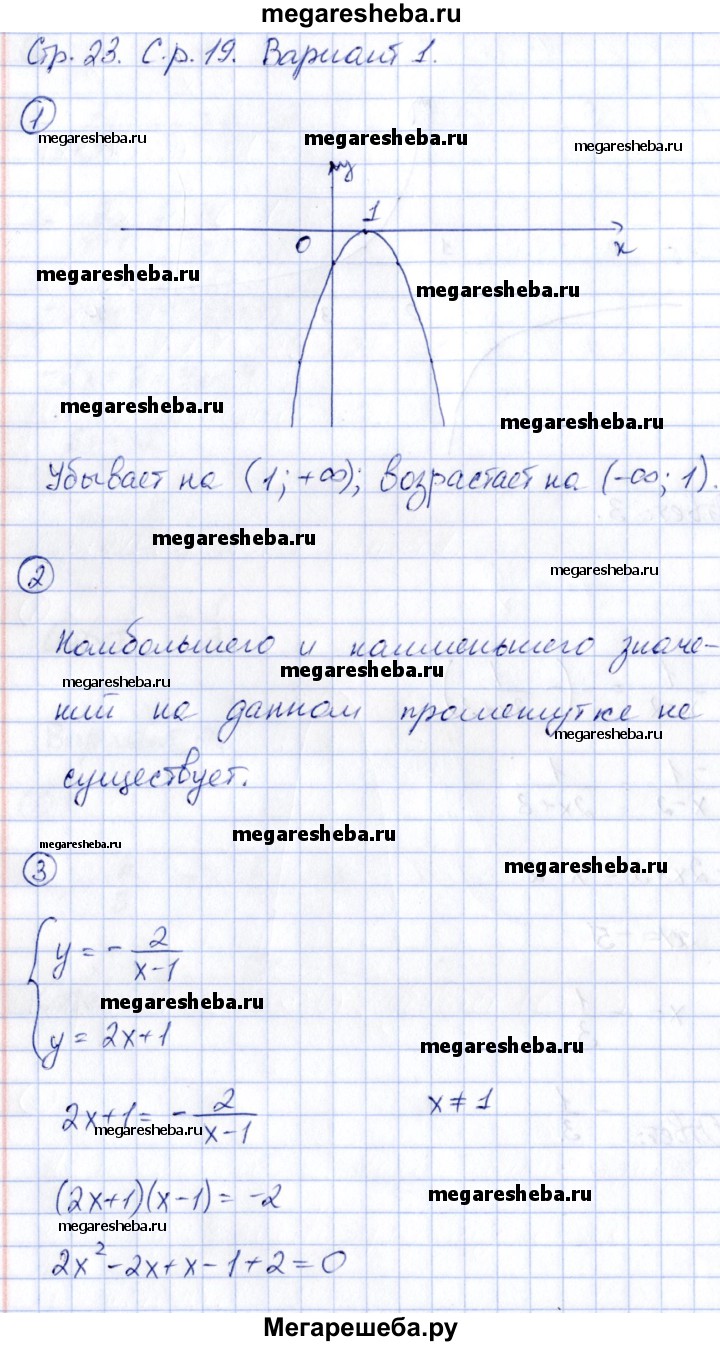 megaresheba.ru
Стр. 23. С.р. 19. Вариант 1.
1
megaresheba.ru
megaresheba.ru
megaresheba.ru
y
1
0
x
megaresheba.ru
megaresheba.ru
megaresheba.ru
megaresheba.ru
Убывает на (1; +∞); возрастает на (-∞; 1).
megaresheba.ru
2
megaresheba.ru
Наибольшего и наименьшего значе-
megaresheba.ru
megaresheba.ru
ний на данном промежутке не
megaresheba.ru
существует.
megaresheba.ru
megaresheba.ru
3
megaresheba.ru
y = - 2/(x-1)
megaresheba.ru
y = 2x+1
megaresheba.ru
2x+1 = - 2/(x-1) x ≠ 1
megaresheba.ru
(2x+1)(x-1) = -2
megaresheba.ru
megaresheba.ru
2x² - 2x + x - 1 + 2 = 0
Мегарешеба.ру